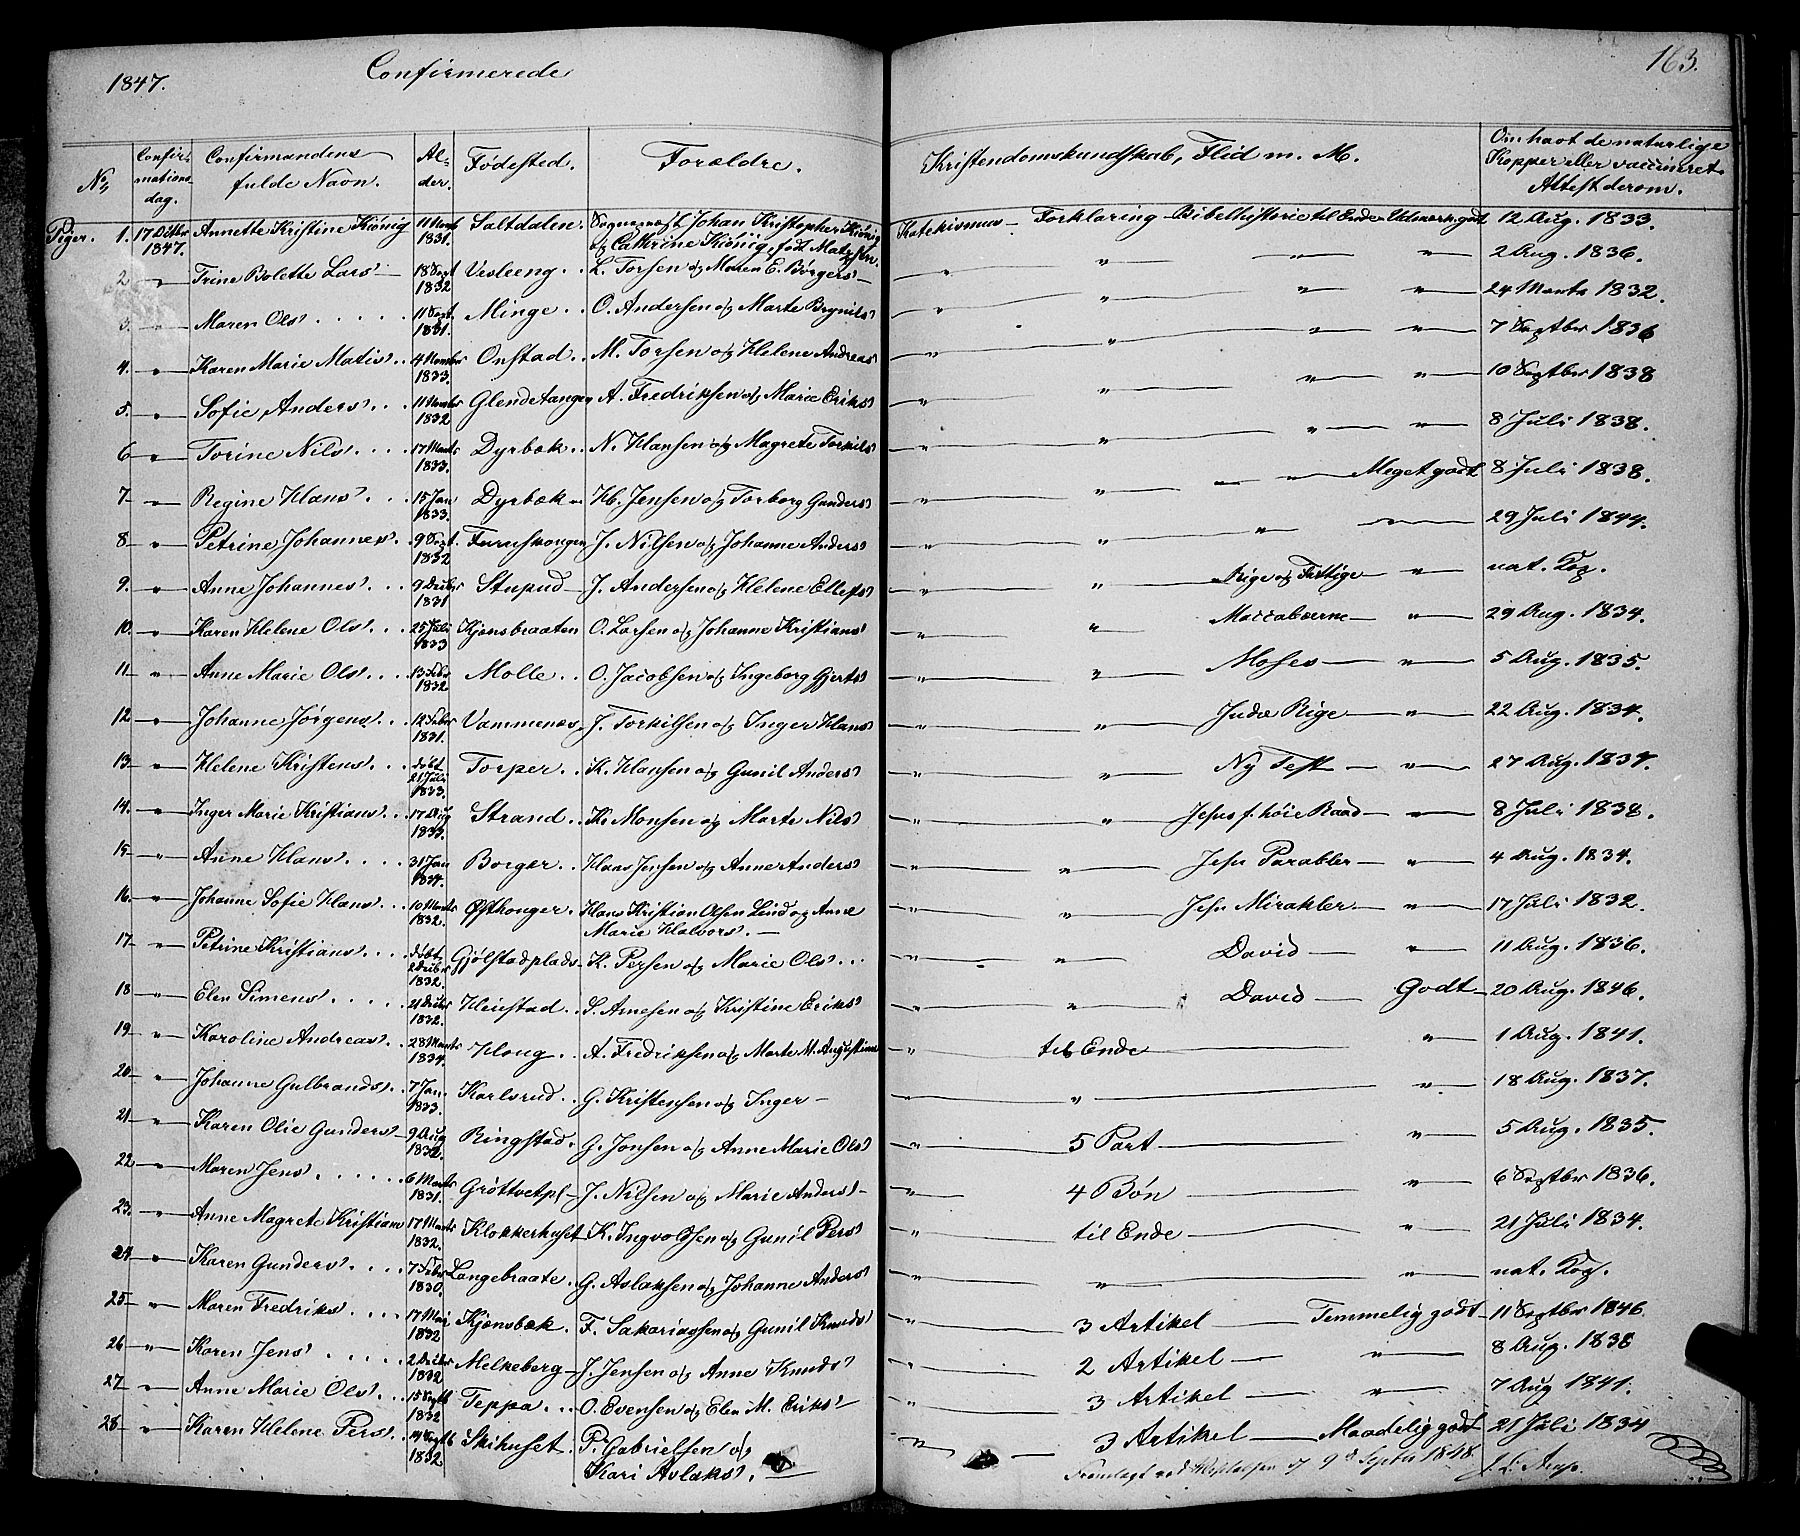 1847. Confirmerede 163.
No Confirmations dag. Confirmandens fulde Navn. Alder. Fødested. Forældre. Kristendomskundskab, Flid m. M. Om havt de naturlige Kopper eller vaccineret. Attest derom.
Piger. 1. 17 Octbr 1847. Annette Kristine Kiönig 11 Marts 1831. Saltdalen. Sognepræst Johan Kristopher Kiönig og Cathrine Kiönig, født Matzsen. Katekismus — Forklaring — Bibelhistorie til Ende — Udmærk. godt 12 Aug. 1833.
2 " Trine Bolette Lars' 18 Sept 1832 Vesleeng .. L. Torsen og Maren E. Börgers — " " " " 2 Aug. 1836.
3. " Maren Ols' 11 Sept. 1831. Minge .. O. Andersen og Marte Brynils' " " " " 24 Marts 1832.
4. " Karen Marie Matis' .. 4 Novmbr 1833. Onstad .. M. Torsen og Helene Andreas' " " " " 7 Septbr 1836
5. " Sofie Anders' .. 11 Novmbr 1832 Glendetangen A. Fredriksen og Marie Eriks' " " " " 10 Septbr 1838
6 " Torine Nils' .... 17 Marts 1833. Dyrbæk .. N. Hansen og Magrete Torkils' " " " " 8 Juli 1838.
7 " Regine Hans' ... 15 Jan 1833. Dyrbæk .. Hb. Jensen og Torborg Gunders' " " " Meget godt 8 Juli 1838.
8 " Petrine Johannes'. 9 Sept. 1832 Furuskongen J. Nilsen og Johanne Anders' " " " " 29 Juli 1844.
9. " Anne Johannes' ... 9 Decbr 1831 Stupud — J. Andersen og Helene Ellefs' " " Rige og Fattige " nat. Kop.
10. " Karen Helene Ols' .. 25 Juli 1833 Kjönsbraaten O. Larsen og Johanne Kristians' " " Maccabæerne " 29 Aug. 1834.
11. " Anne Marie Ols' ... 13 Febr 1832 Molle .. O. Jacobsen og Ingeborg Gjerts' " " Moses " 5 Aug. 1835.
12. " Johanne Jörgens' .. 12 Febr 1831. Vammenæs J. Torkilsen og Inger Hans' " " Judæ Rige " 22 Aug. 1834.
13. " Helene Kristens' ... döbt 21 Juli 1833. Torper .. K. Hansen og Gunil Anders' " " Ny Test " 27 Aug. 1834.
14. " Inger Marie Kristians' .. 17 Aug 1833. Strand .. K. Monsen og Marte Nils' " " Jesus f. höie Raad " 8 Juli 1838.
15. " Anne Hans' .... 31 Jan 1834. Borger .. Hans Jensen og Anne Anders' " " Jesu Parabler " 4 Aug. 1834.
16. " Johanne Sofie Hans' .. 10 Marts 1832. Östhonger. Hans Kristian Olsen Lund og Anne Marie Halvors'. " " Jesu Mirakler " 17 Juli 1832.
17. " Petrine Kristians' ... döbt 2 Decbr 1832. Gjölstadplads K. Persen og Marie Ols' ... " " David " 11 Aug. 1836.
18 " Elen Simens' ..... 21 Decbr 1832. Heiestad .. S. Arnesen og Kristine Eriks' " " David Godt 20 Aug. 1846.
19. " Karoline Andreas' .. 28 Marts 1834. Haug .. A. Fredriksen og Marte M. Augustinus " til Ende " 1 Aug. 1841.
20. " Johanne Gulbrands' .. 7 Jan. 1833. Karlsrud .. G. Kristensen og Inger — " " " 18 Aug. 1837.
21. " Karen Olie Gunders' 9 Aug 1832. Ringstad. G. Jonsen og Anne Marie Ols' " 5 Part " 5 Aug. 1835.
22 " Maren Jens' ...... 6 Marts 1831. Gröttvetpl — J. Nilsen og Marie Anders' " 4 Bön " 6 Septbr 1836.
23. " Anne Magrete Kristians' 17 Marts 1832. Klokkerhuset K. Ingvolsen og Gunil Pers' " til Ende " 21 Juli 1834.
24 " Karen Gunders' .... 7 Febr 1830. Langebraate. G. Aslaksen og Johanne Anders' " " " nat. Kop.
25 " Maren Fredriks' ... 17 Mai 1832 Kjönsbæk. F. Sakariassen og Gunil Knuds' " 3 Artikel Temmelig godt 11 Septbr 1846.
26 " Karen Jens' ..... 2 Decbr 1832 Melkeberg — J. Jensen og Anne Knuds' " 2 Artikel " 8 Aug. 1838
27 " Anne Marie Ols'. 15 Septb 1832 Teppa ... O. Evensen og Elen M. Eriks' " 3 Artikel " 7 Aug 1841.
28 " Karen Helene Pers'. 14 Septb 1832 Skihuset. P. Gabrielsen og Kari Aslaks'. " 3 Artikel Maadelig godt 21 Juli 1834
Fremlagt ved Visitatsen d 9d Septbr 1848.